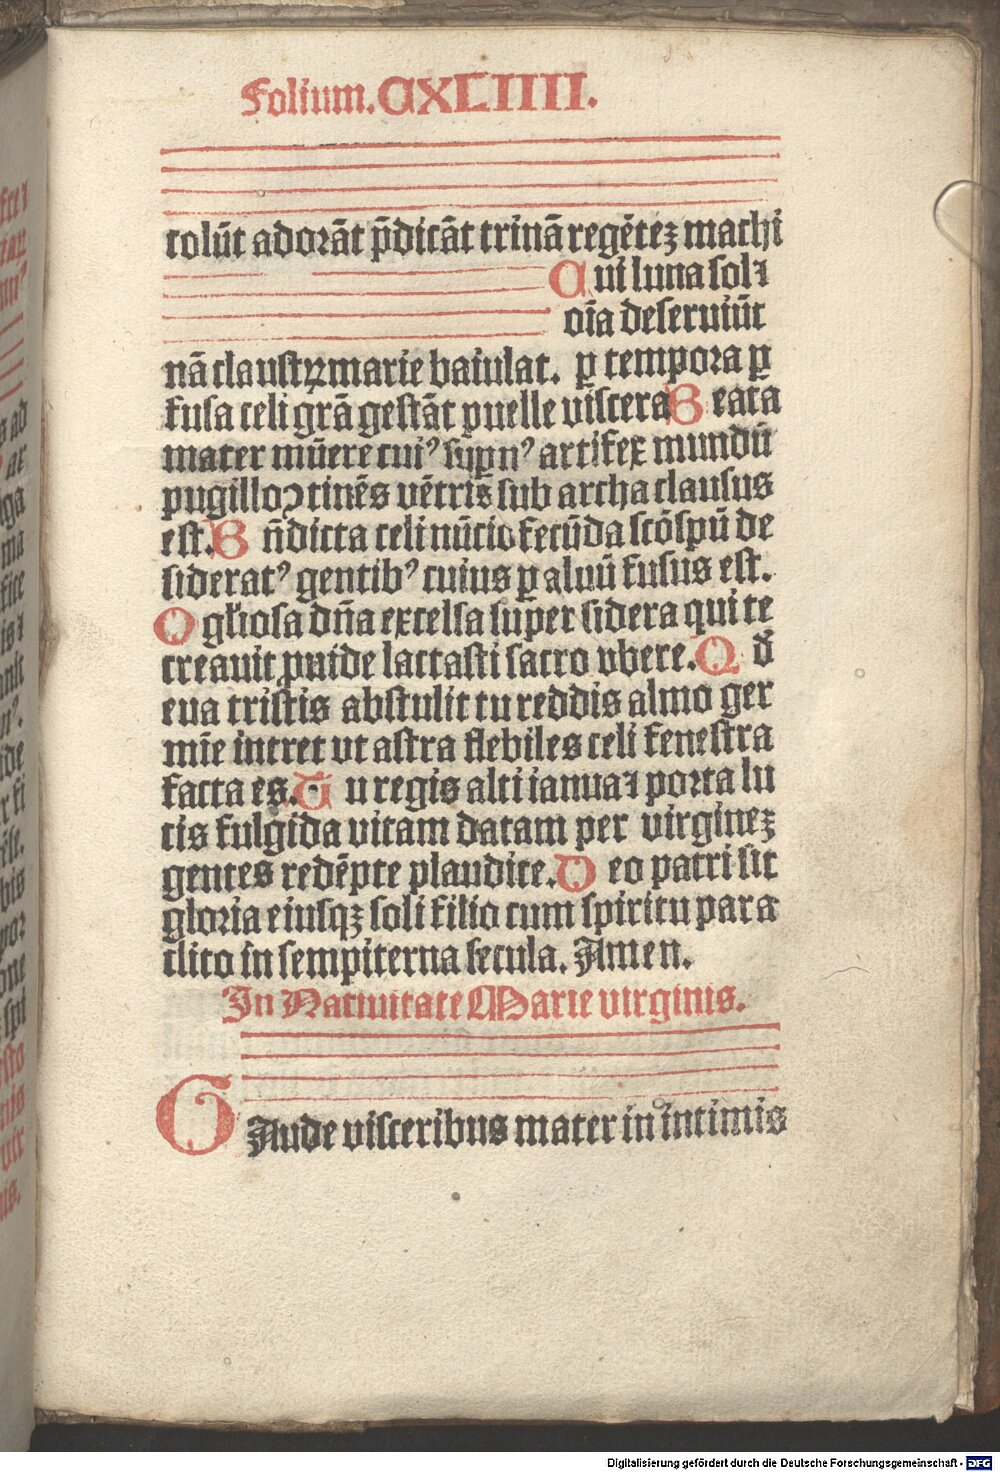 Folium.CXLIIII.
colūt adorāt p̄dicāt trinā regētez machi
Cui luna sol ⁊
oīa deseruiūt
nā claustꝝ marie baiulat. ꝑ tempora ꝑ
fusa celi grā gestāt puelle viscera Beata
mater mūere cuiꝰ supnꝰ artifex mundū
pugillo ↄtinēs vētris̄ sub archa clausus
est. Bn̄dicta celi nūcio fecūda scōspū de
sideratꝰ gentibꝰ cuius ꝑ aluū fusus est.
O gl'iosa dn̄a excelsa super sidera qui te
creauit ꝓuide lactasti sacro vbere. Qd̄
eua tristis abstulit tu reddis almo ger
mīe intret vt astra flebiles celi fenestra
facta es. Tu regis alti ianua ⁊ porta lu
cis fulgida vitam datam per virginez
gentes redēpte plaudite. Deo patri sit
gloria eiusqꝫ soli filio cum spiritu para
clito in sempiterna secula. Amen.
In Natiuitate Marie virginis.
GAude visceribus mater in intimis
Digitalisierung gefördert durch die Deutsche Forschungsgemeinschaft - DFG